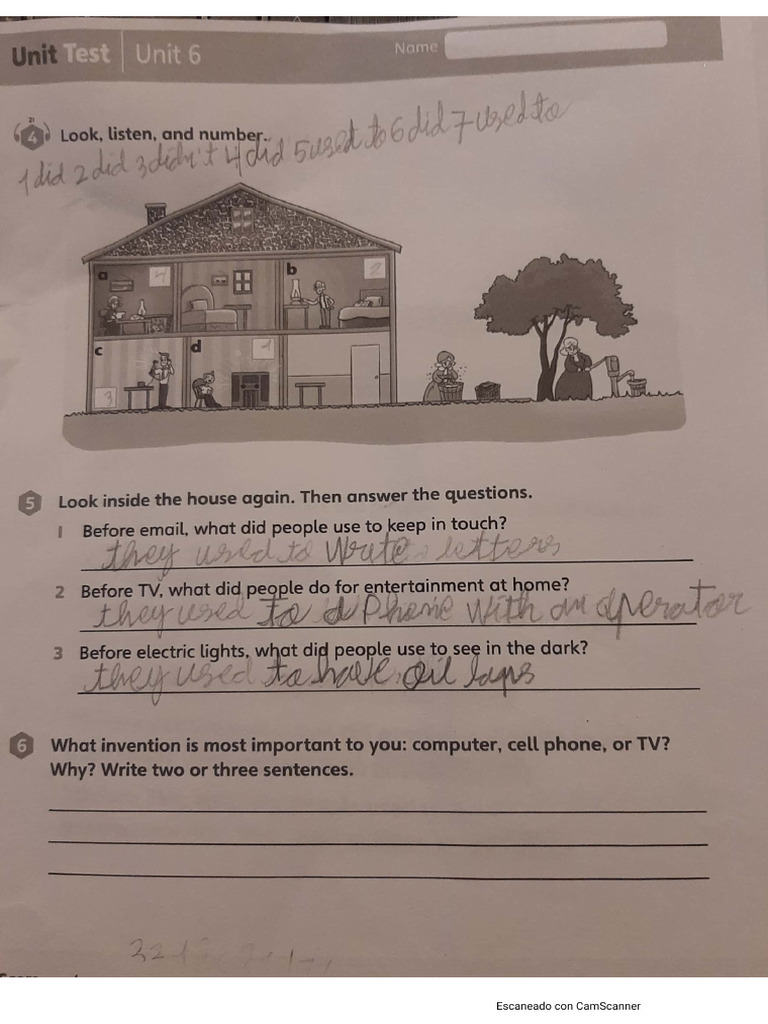 Unit Test Unit 6 Name
21
4 Look, listen, and number.
1 did 2 did 3 didn't 4 did 5 used to 6 did 7 used to
a 4
b 2
c 3
d 1
5 Look inside the house again. Then answer the questions.
1 Before email, what did people use to keep in touch?
they used to write letters
2 Before TV, what did people do for entertainment at home?
they used to a Phone with an operator
3 Before electric lights, what did people use to see in the dark?
they used to have oil laps
6 What invention is most important to you: computer, cell phone, or TV?
Why? Write two or three sentences.
Escaneado con CamScanner